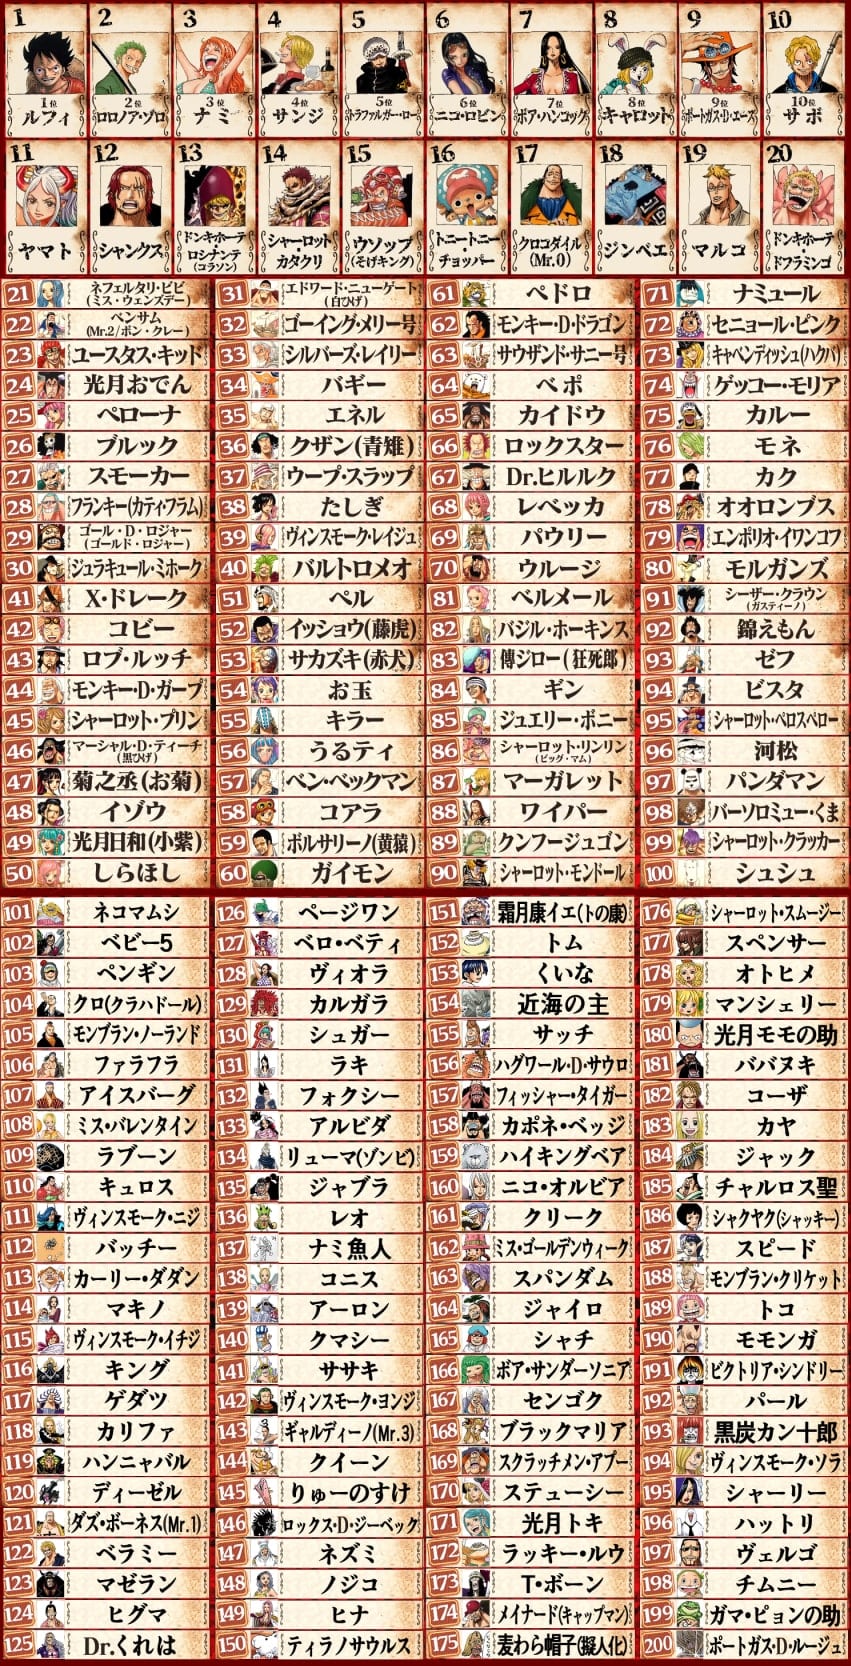 1 2 3 4 5 6 7 8 9 10
1位 2位 3位 4位 5位 6位 7位 8位 9位 10位
ルフィ ロロノア・ゾロ ナミ サンジ トラファルガー・ロー ニコ・ロビン ボア・ハンコック キャロット ポートガス・D・エース サボ
11 12 13 14 15 16 17 18 19 20
ヤマト シャンクス ドンキホーテ・ロシナンテ(コラソン) シャーロット・カタクリ ウソップ(そげキング) トニートニー・チョッパー クロコダイル(Mr.0) ジンベエ マルコ ドンキホーテ・ドフラミンゴ
21 ネフェルタリ・ビビ(ミス・ウェンズデー) 31 エドワード・ニューゲート(白ひげ) 61 ペドロ 71 ナミュール
22 ベンサム(Mr.2/ボン・クレー) 32 ゴーイング・メリー号 62 モンキー・D・ドラゴン 72 セニョール・ピンク
23 ユースタス・キッド 33 シルバーズ・レイリー 63 サウザンド・サニー号 73 キャベンディッシュ(ハクバ)
24 光月おでん 34 バギー 64 ベポ 74 ゲッコー・モリア
25 ペローナ 35 エネル 65 カイドウ 75 カルー
26 ブルック 36 クザン(青雉) 66 ロックスター 76 モネ
27 スモーカー 37 ウープ・スラップ 67 Dr.ヒルルク 77 カク
28 フランキー(カティ・フラム) 38 たしぎ 68 レベッカ 78 オオロンブス
29 ゴール・D・ロジャー(ゴールド・ロジャー) 39 ヴィンスモーク・レイジュ 69 パウリー 79 エンポリオ・イワンコフ
30 ジュラキュール・ミホーク 40 バルトロメオ 70 ウルージ 80 モルガンズ
41 X・ドレーク 51 ペル 81 ベルメール 91 シーザー・クラウン(ガスティーノ)
42 コビー 52 イッショウ(藤虎) 82 バジル・ホーキンス 92 錦えもん
43 ロブ・ルッチ 53 サカズキ(赤犬) 83 傳ジロー(狂死郎) 93 ゼフ
44 モンキー・D・ガープ 54 お玉 84 ギン 94 ビスタ
45 シャーロット・プリン 55 キラー 85 ジュエリー・ボニー 95 シャーロット・ペロスペロー
46 マーシャル・D・ティーチ(黒ひげ) 56 うるティ 86 シャーロット・リンリン(ビッグ・マム) 96 河松
47 菊之丞(お菊) 57 ベン・ベックマン 87 マーガレット 97 パンダマン
48 イゾウ 58 コアラ 88 ワイパー 98 バーソロミュー・くま
49 光月日和(小紫) 59 ボルサリーノ(黄猿) 89 クンフージュゴン 99 シャーロット・クラッカー
50 しらほし 60 ガイモン 90 シャーロット・モンドール 100 シュシュ
101 ネコマムシ 126 ページワン 151 霜月康イエ(トの康) 176 シャーロット・スムージー
102 ベビー5 127 ベロ・ベティ 152 トム 177 スペンサー
103 ペンギン 128 ヴィオラ 153 くいな 178 オトヒメ
104 クロ(クラハドール) 129 カルガラ 154 近海の主 179 マンシェリー
105 モンブラン・ノーランド 130 シュガー 155 サッチ 180 光月モモの助
106 ファラフラ 131 ラキ 156 ハグワール・D・サウロ 181 ババヌキ
107 アイスバーグ 132 フォクシー 157 フィッシャー・タイガー 182 コーザ
108 ミス・バレンタイン 133 アルビダ 158 カポネ・ベッジ 183 カヤ
109 ラブーン 134 リューマ(ゾンビ) 159 ハイキングベア 184 ジャック
110 キュロス 135 ジャブラ 160 ニコ・オルビア 185 チャルロス聖
111 ヴィンスモーク・ニジ 136 レオ 161 クリーク 186 シャクヤク(シャッキー)
112 バッチー 137 ナミ魚人 162 ミス・ゴールデンウィーク 187 スピード
113 カーリー・ダダン 138 コニス 163 スパンダム 188 モンブラン・クリケット
114 マキノ 139 アーロン 164 ジャイロ 189 トコ
115 ヴィンスモーク・イチジ 140 クマシー 165 シャチ 190 モモンガ
116 キング 141 ササキ 166 ボア・サンダーソニア 191 ビクトリア・シンドリー
117 ゲダツ 142 ヴィンスモーク・ヨンジ 167 センゴク 192 パール
118 カリファ 143 ギャルディーノ(Mr.3) 168 ブラックマリア 193 黒炭カン十郎
119 ハンニャバル 144 クイーン 169 スクラッチメン・アプー 194 ヴィンスモーク・ソラ
120 ディーゼル 145 りゅーのすけ 170 ステューシー 195 シャーリー
121 ダズ・ボーネス(Mr.1) 146 ロックス・D・ジーベック 171 光月トキ 196 ハットリ
122 ベラミー 147 ネズミ 172 ラッキー・ルウ 197 ヴェルゴ
123 マゼラン 148 ノジコ 173 T・ボーン 198 チムニー
124 ヒグマ 149 ヒナ 174 メイナード(キャップマン) 199 ガマ・ピョンの助
125 Dr.くれは 150 ティラノサウルス 175 麦わら帽子(擬人化) 200 ポートガス・D・ルージュ